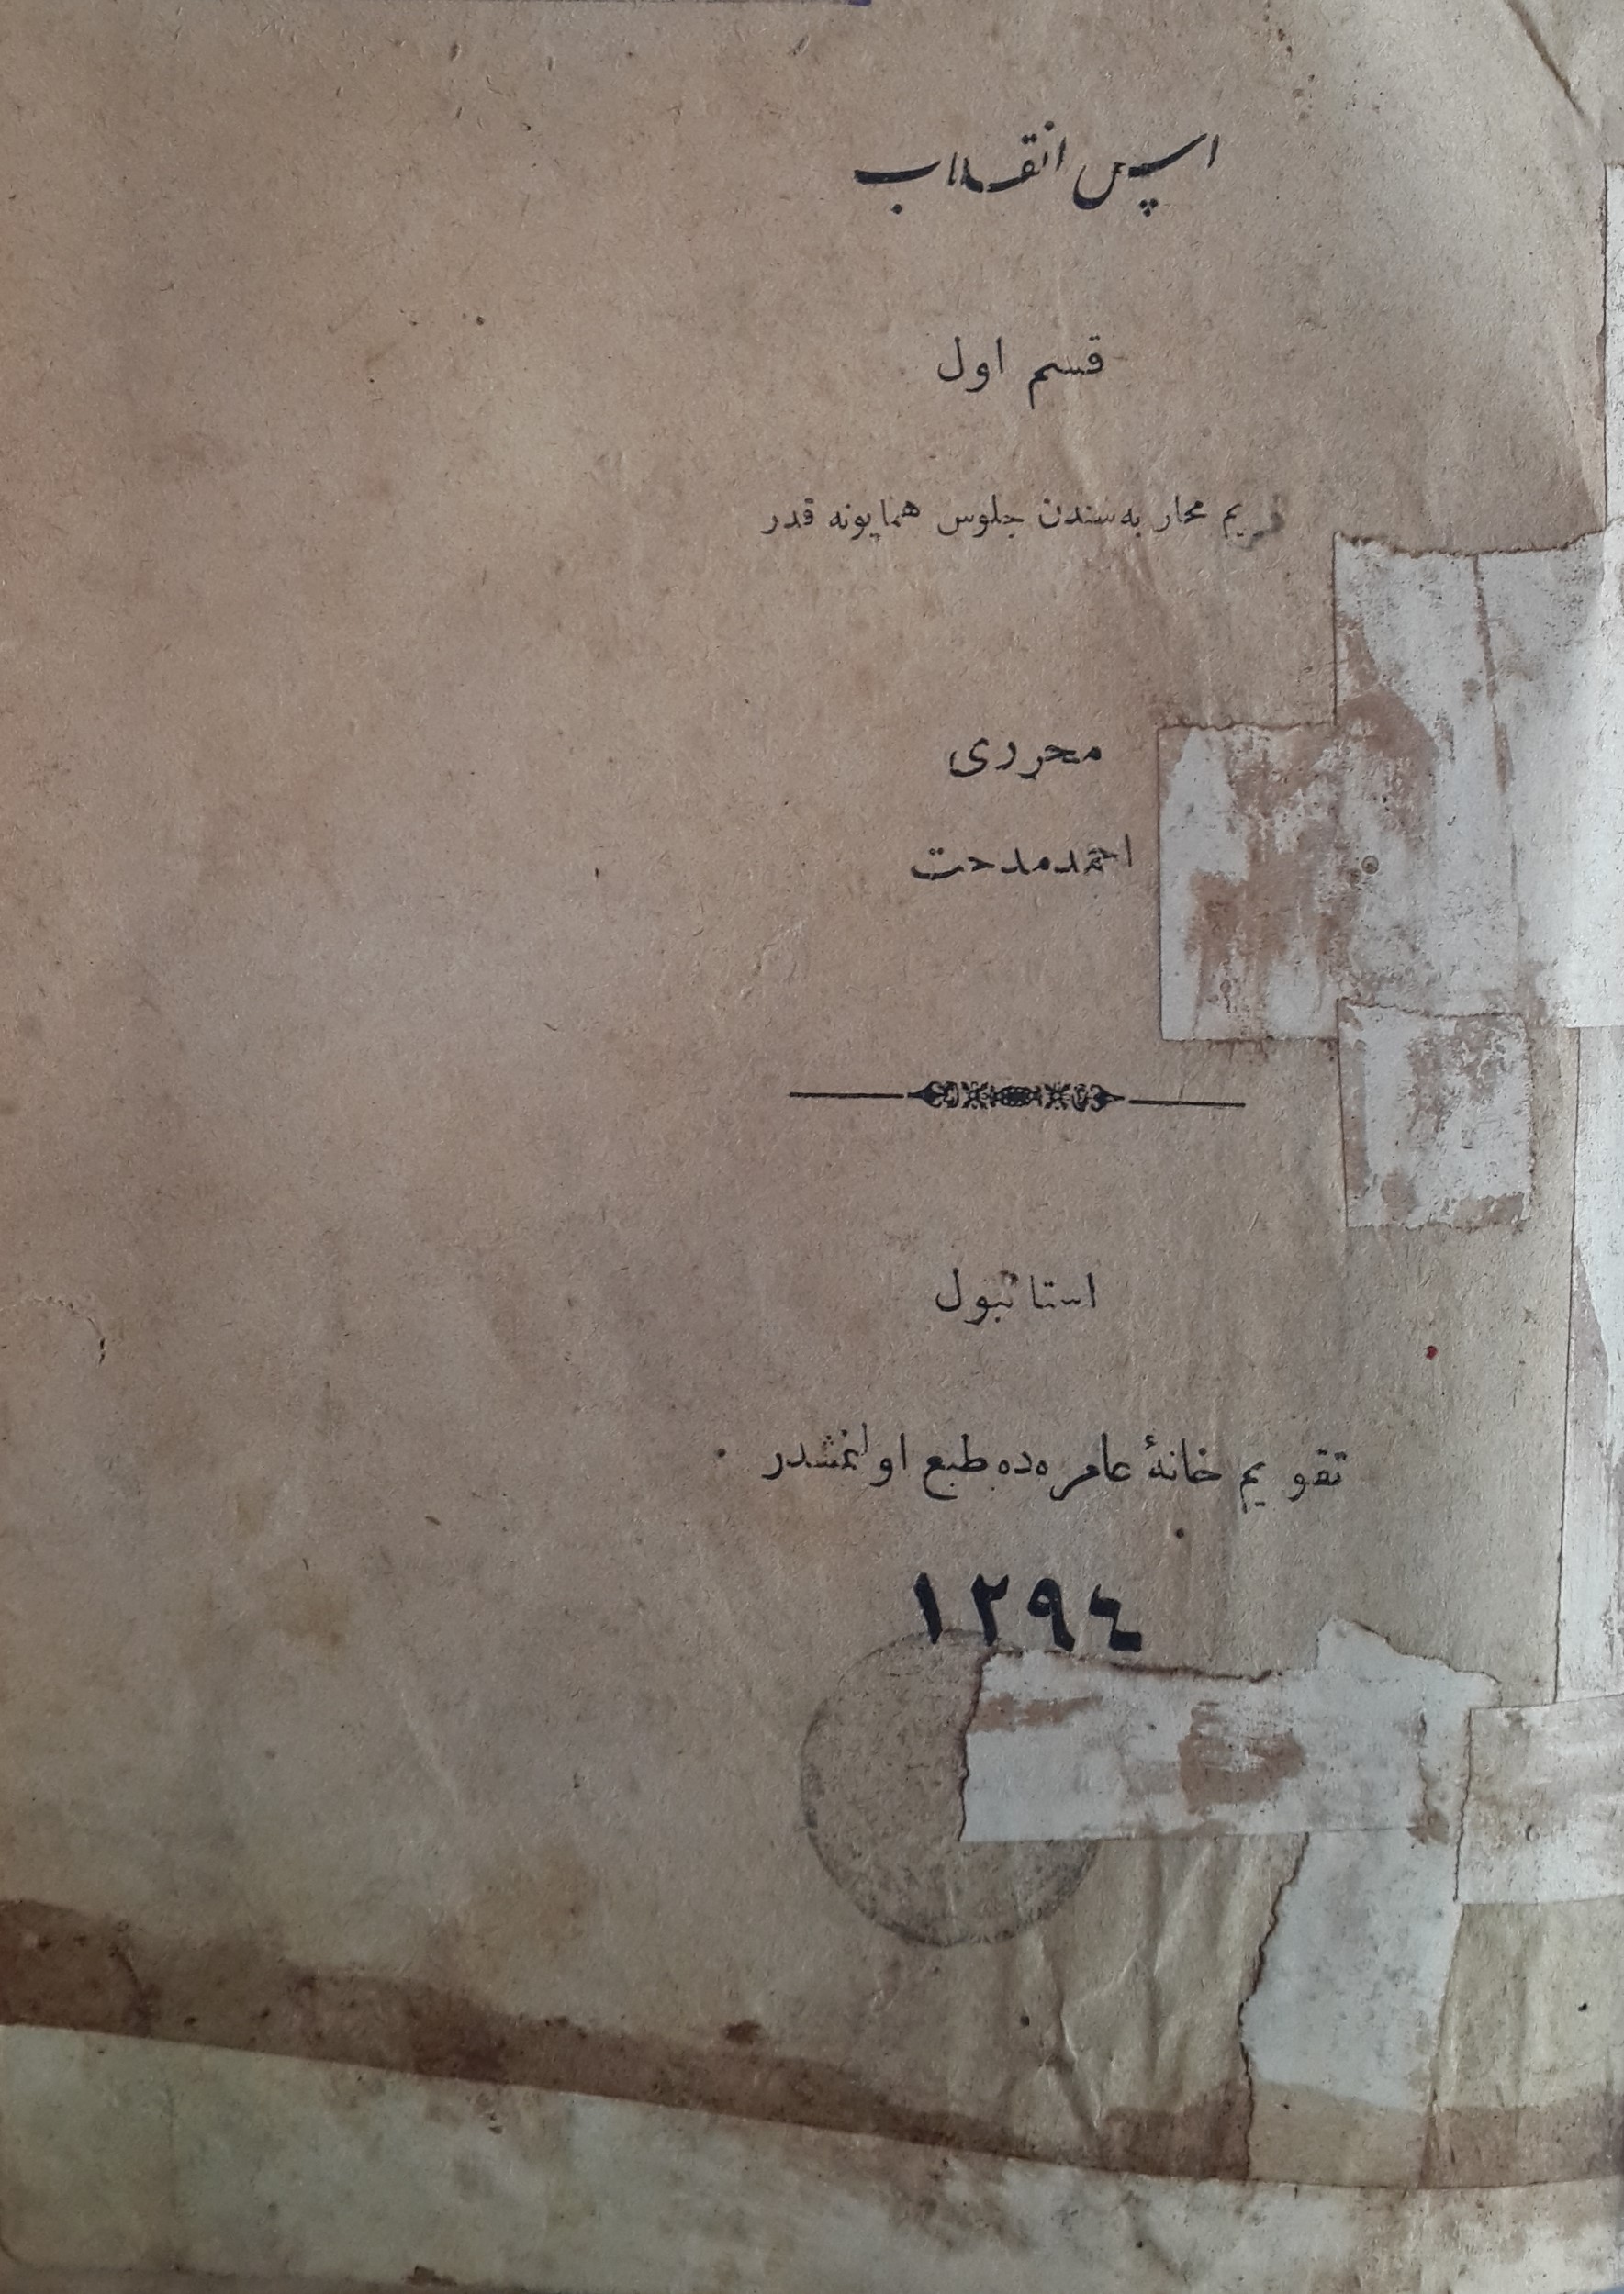 اسپس انقلاب
قسم اول
قریم محاربه‌سندن جلوس همایونه قدر
محرری
احمد مدحت
استانبول
تقویم خانهٔ عامره‌ده طبع اولنمشدر
١٢٩٤